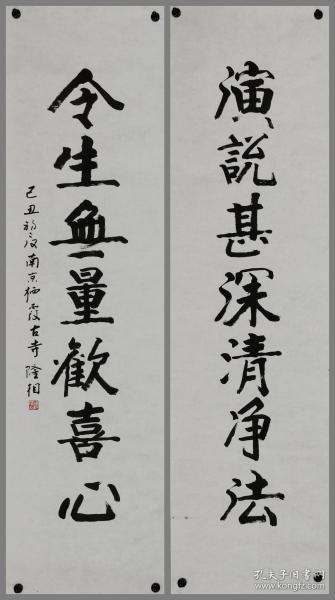 演說甚深清净法
令生無量歡喜心
己丑初夏南京栖霞古寺隆相
孔夫子旧书网
www.kongfz.com